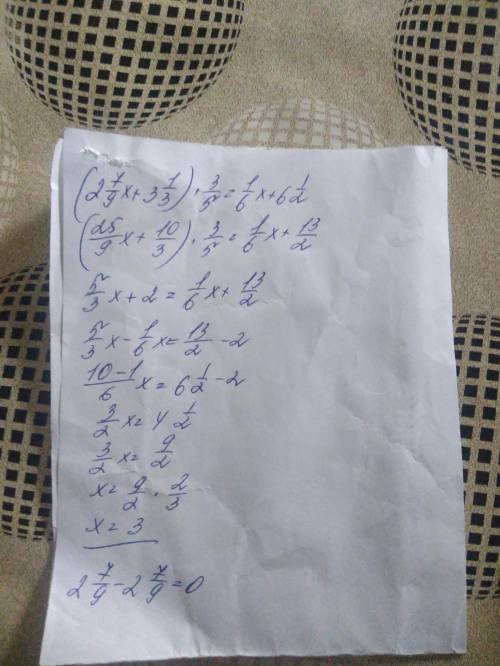 (2 7/9 x + 3 1/3) · 3/5 = 1/6 x + 6 1/2
(25/9 x + 10/3) · 3/5 = 1/6 x + 13/2
5/3 x + 2 = 1/6 x + 13/2
5/3 x - 1/6 x = 13/2 - 2
10-1/6 x = 6 1/2 - 2
3/2 x = 4 1/2
3/2 x = 9/2
x = 9/2 · 2/3
x = 3
2 7/9 - 2 7/9 = 0